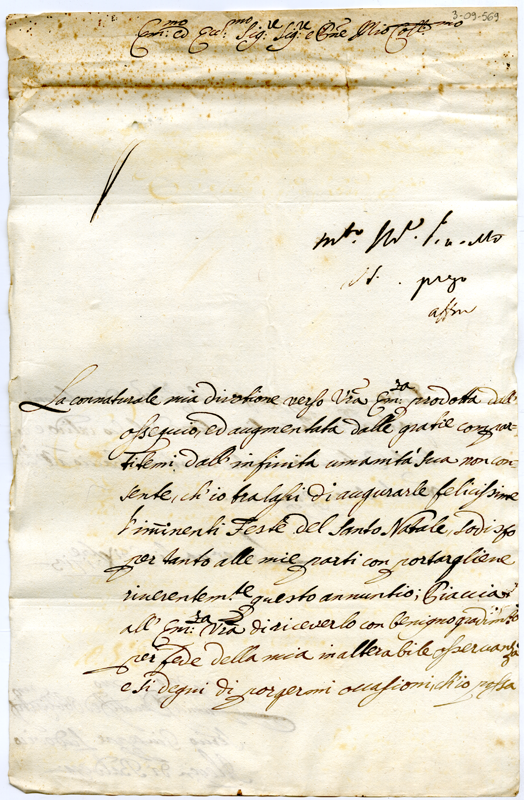 3-09-569
Em:mo ed Ecc:mo Sig:re Sig:re e Pne Mio Coll:mo
prego
affm
La connaturale mia divotione verso Vra Em:za prodotta dall'
ossequio, ed augmentata dalle gratie compar-
titemi dall'infinita umanità sua non con-
sente, ch'io tralasci di augurarle felicissime
l'imminenti Feste del Santo Natale, sodisfo
per tanto alle mie parti con portargliene
riverentem:te questo annuntio; Piaccia
all' Em:za Vra di riceverlo con benigno gradim:to
per fede della mia inalterabile osservanza
e si degni di porgermi occasioni, ch'io possa